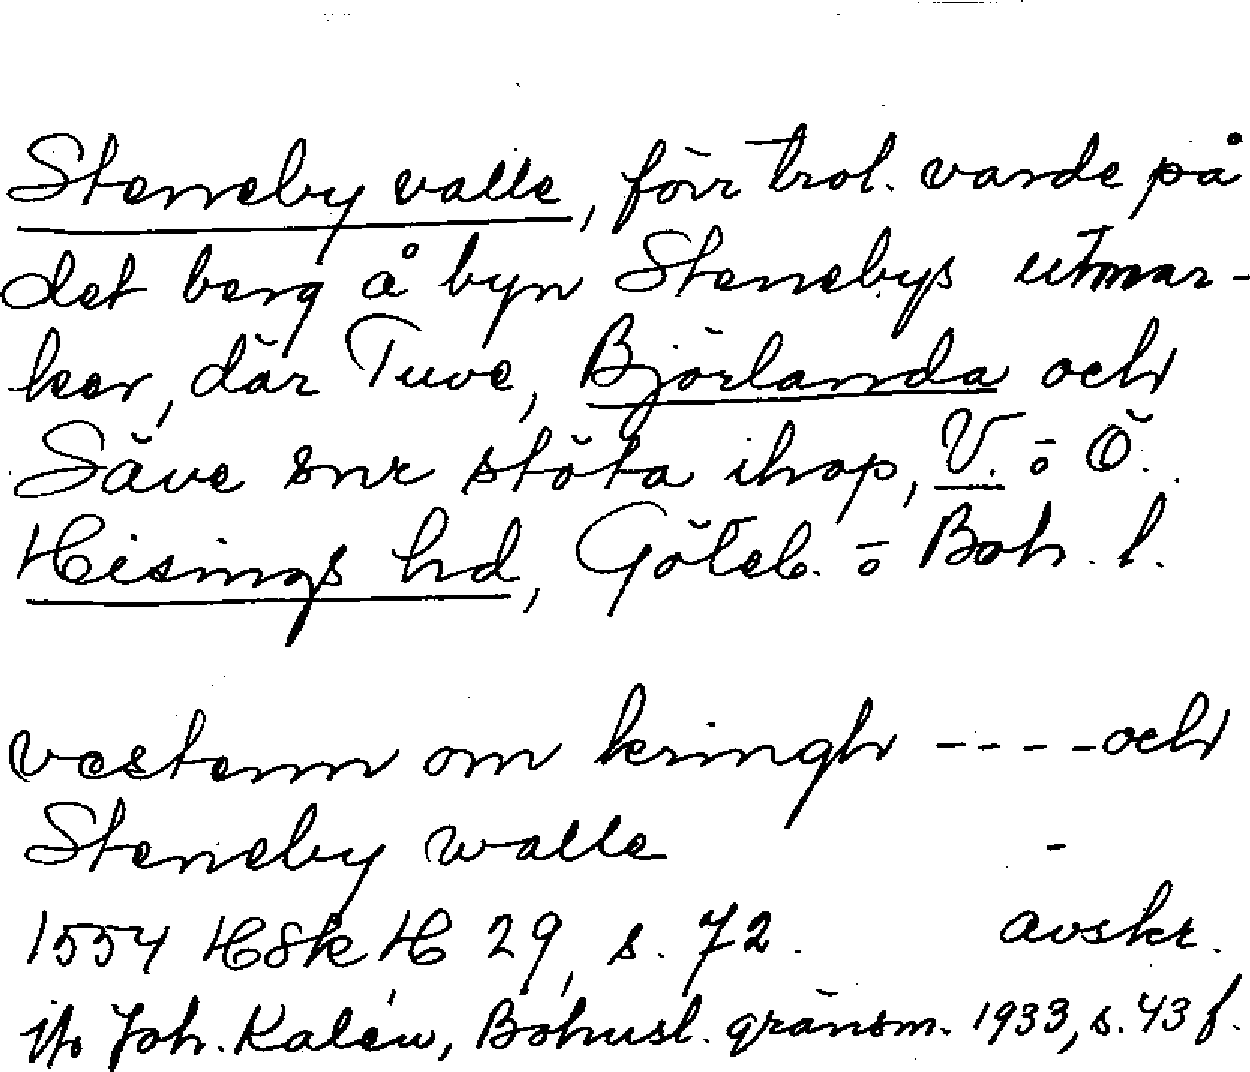 Steneby valle, förr trol. varde på
det berg å byn Stenebys utmar-
ker, där Tuve, Björlanda och
Säve snr stöta ihop, V. o Ö.
Hisings hd, Göteb. o Boh. l.
vestenn om kringh ----och
Steneby walle -
1554 HSkH 29, s. 72. avskr.
Joh. Kalén, Bohusl. gränsm. 1933, s. 43 f.